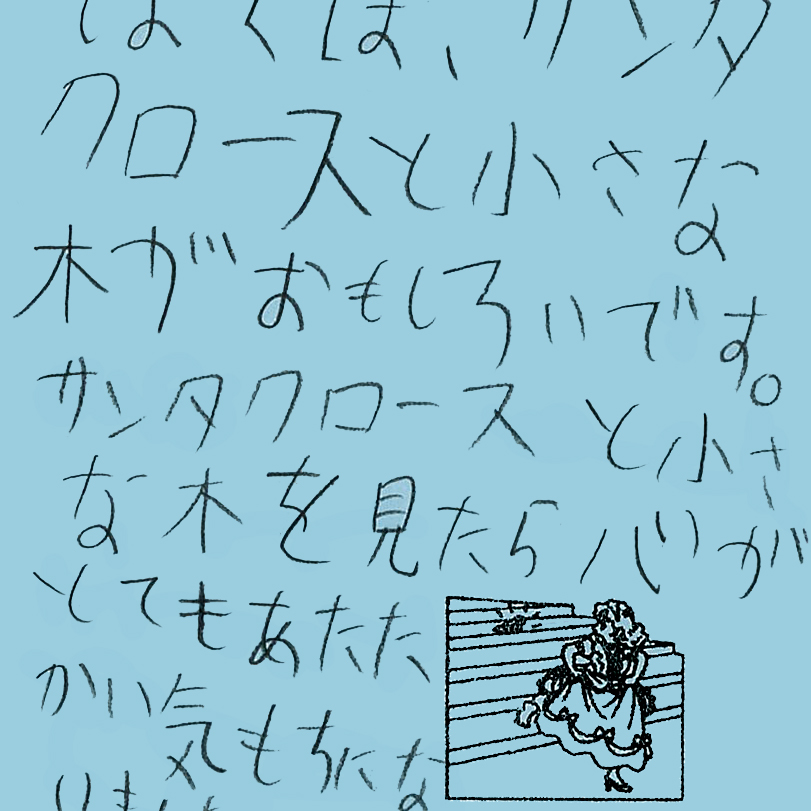 ぼくは、サンタ
クロースと小さな
木がおもしろいです。
サンタクロースと小さ
な木を見たら心が
とてもあたた
かい気もちにな
りました